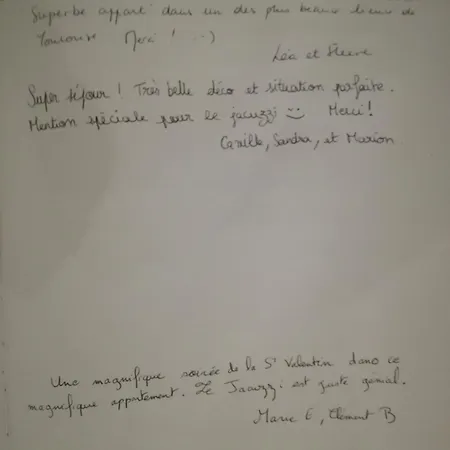 Superbe appart' dans un des plus beaux lieux de
Toulouse Merci ! :-)
Léa et
Super séjour ! Très belle déco et situation parfaite.
Mention spéciale pour le jacuzzi :) Merci !
Camille, Sandra, et Marion
Une magnifique soirée de la St Valentin dans ce
magnifique appartement. Le Jacuzzi est juste génial.
Marie E, Clément B